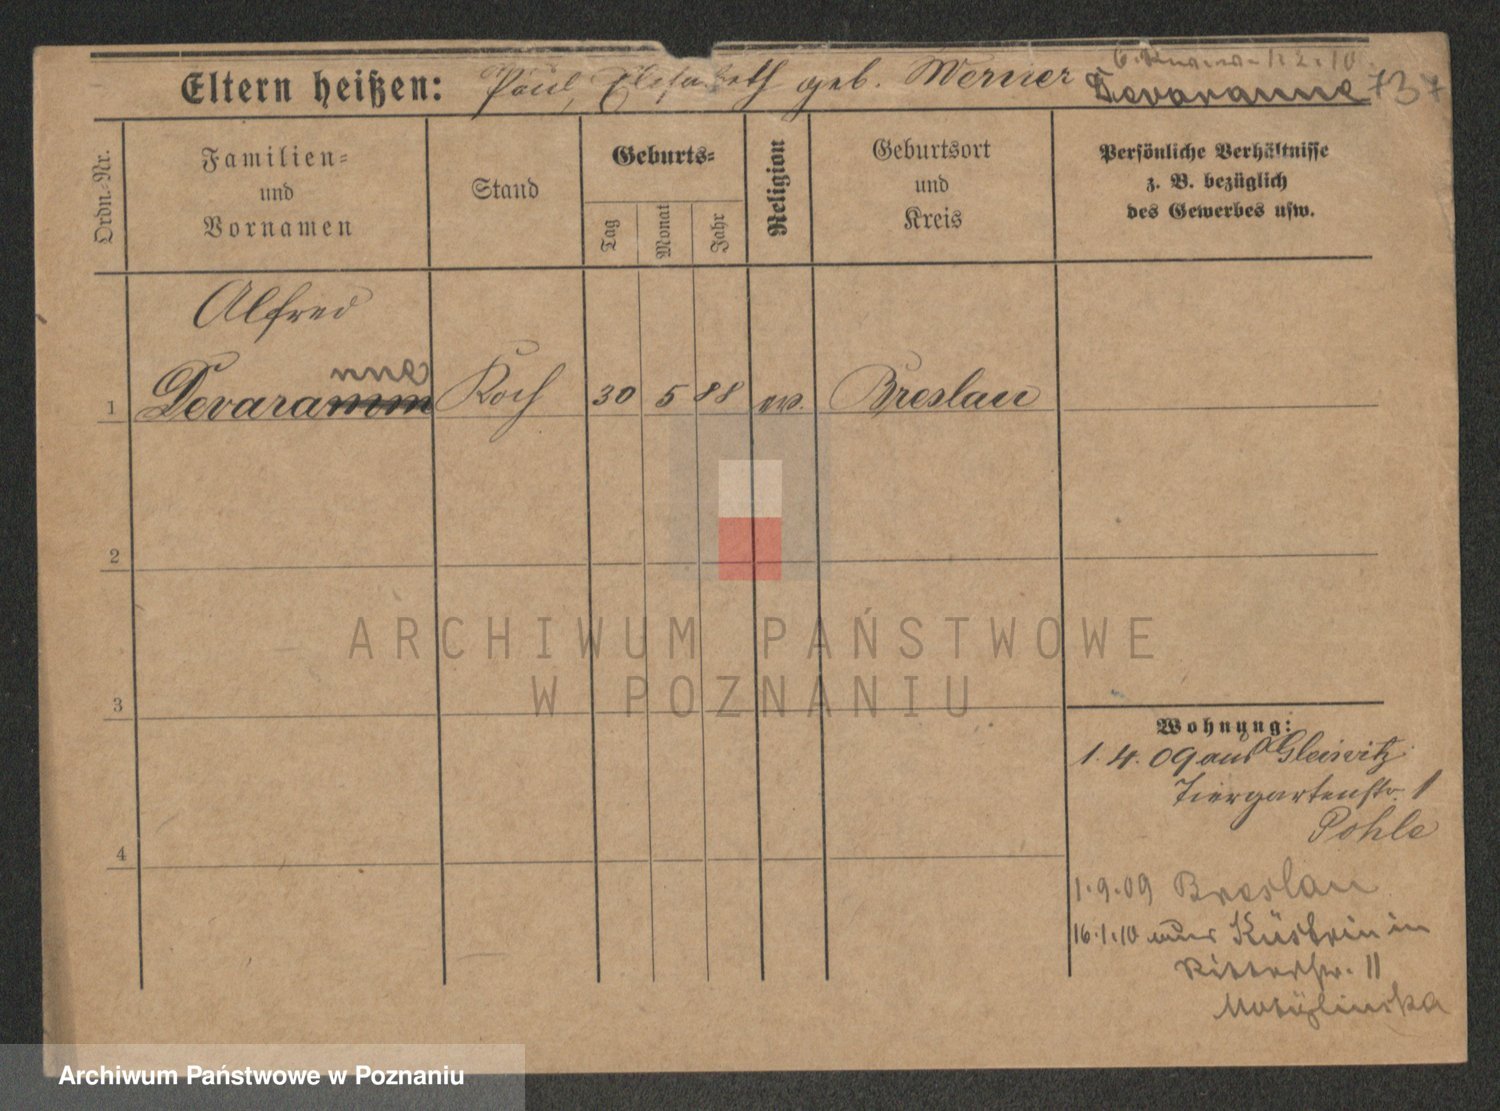 Eltern heißen: Paul, Elisabeth geb. Werner Devaranne
1.2.10.
Ordn.-Nr.
Familien-
und
Vornamen
Stand
Geburts-
Tag
Monat
Jahr
Religion
Geburtsort
und
Kreis
Persönliche Verhältnisse
z. B. bezüglich
des Gewerbes usw.
Alfred
nne
1 Devaramm Koch 30 5 88 ev. Breslau
2
3
4
ARCHIWUM PAŃSTWOWE
W POZNANIU
Wohnung:
1.4.09 aus Gleiwitz
Tiergartenstr. 1
Pohle
1.9.09 Breslau
16.1.10 aus Küstrin in
Ritterstr. 11
Archiwum Państwowe w Poznaniu